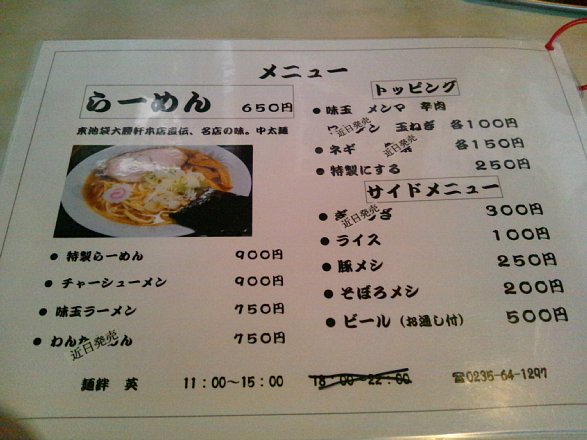 メニュー
らーめん 650円
東池袋大勝軒本店直伝、名店の味。中太麺
特製らーめん 900円
チャーシューメン 900円
味玉ラーメン 750円
わんた 近日発売 ん 750円
トッピング
味玉 メンマ 辛肉
近日発売 ン 玉ねぎ 各100円
ネギ 近日発売 各150円
特製にする 250円
サイドメニュー
近日発売 300円
ライス 100円
豚メシ 250円
そぼろメシ 200円
ビール（お通し付） 500円
麺絆 英 11：00～15：00 18：00～22：00 ☎0235-64-1297